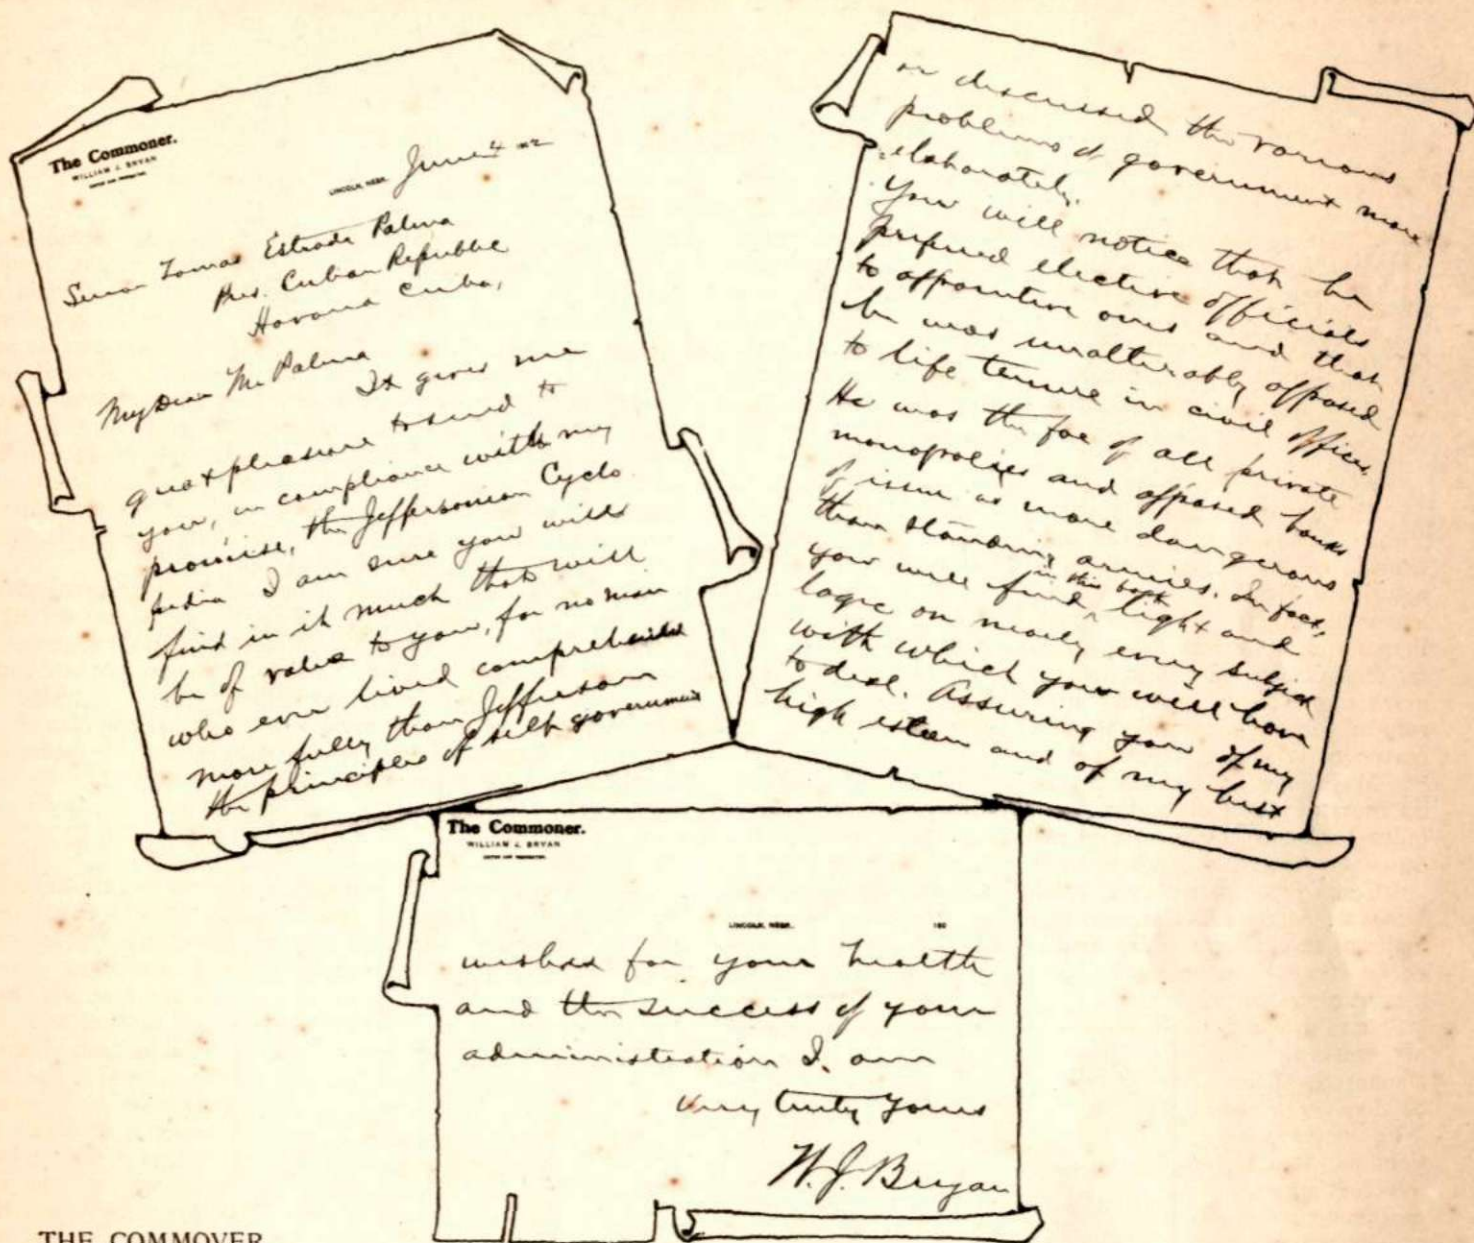 The Commoner.
WILLIAM J. BRYAN
EDITOR AND PROPRIETOR.
LINCOLN, NEBR. June 4 1902
Senor Tomas Estrada Palma
Pres. Cuban Republic
Havana Cuba,
My Dear Mr Palma
It gives me
great pleasure to send to
you, in compliance with my
promise, the Jeffersonian Cyclo
pedia I am sure you will
find in it much that will
be of value to you, for no man
who ever lived comprehended
more fully than Jefferson
the principles of self government
or discussed the various
problems of government more
elaborately.
You will notice that he
prefered elective officials
to appointive ones and that
he was unalterably opposed
to life tenure in civil offices.
He was the foe of all private
monopolies and opposed banks
of issue as more dangerous
than standing armies. In fact,
you will find in this book light and
logic on nearly every subject
with which you will have
to deal. Assuring you of my
high esteem and of my best
The Commoner.
WILLIAM J. BRYAN
EDITOR AND PROPRIETOR.
LINCOLN, NEBR. 190
wishes for your health
and the success of your
administration I am
Very truly yours
W. J. Bryan
THE COMMOVER